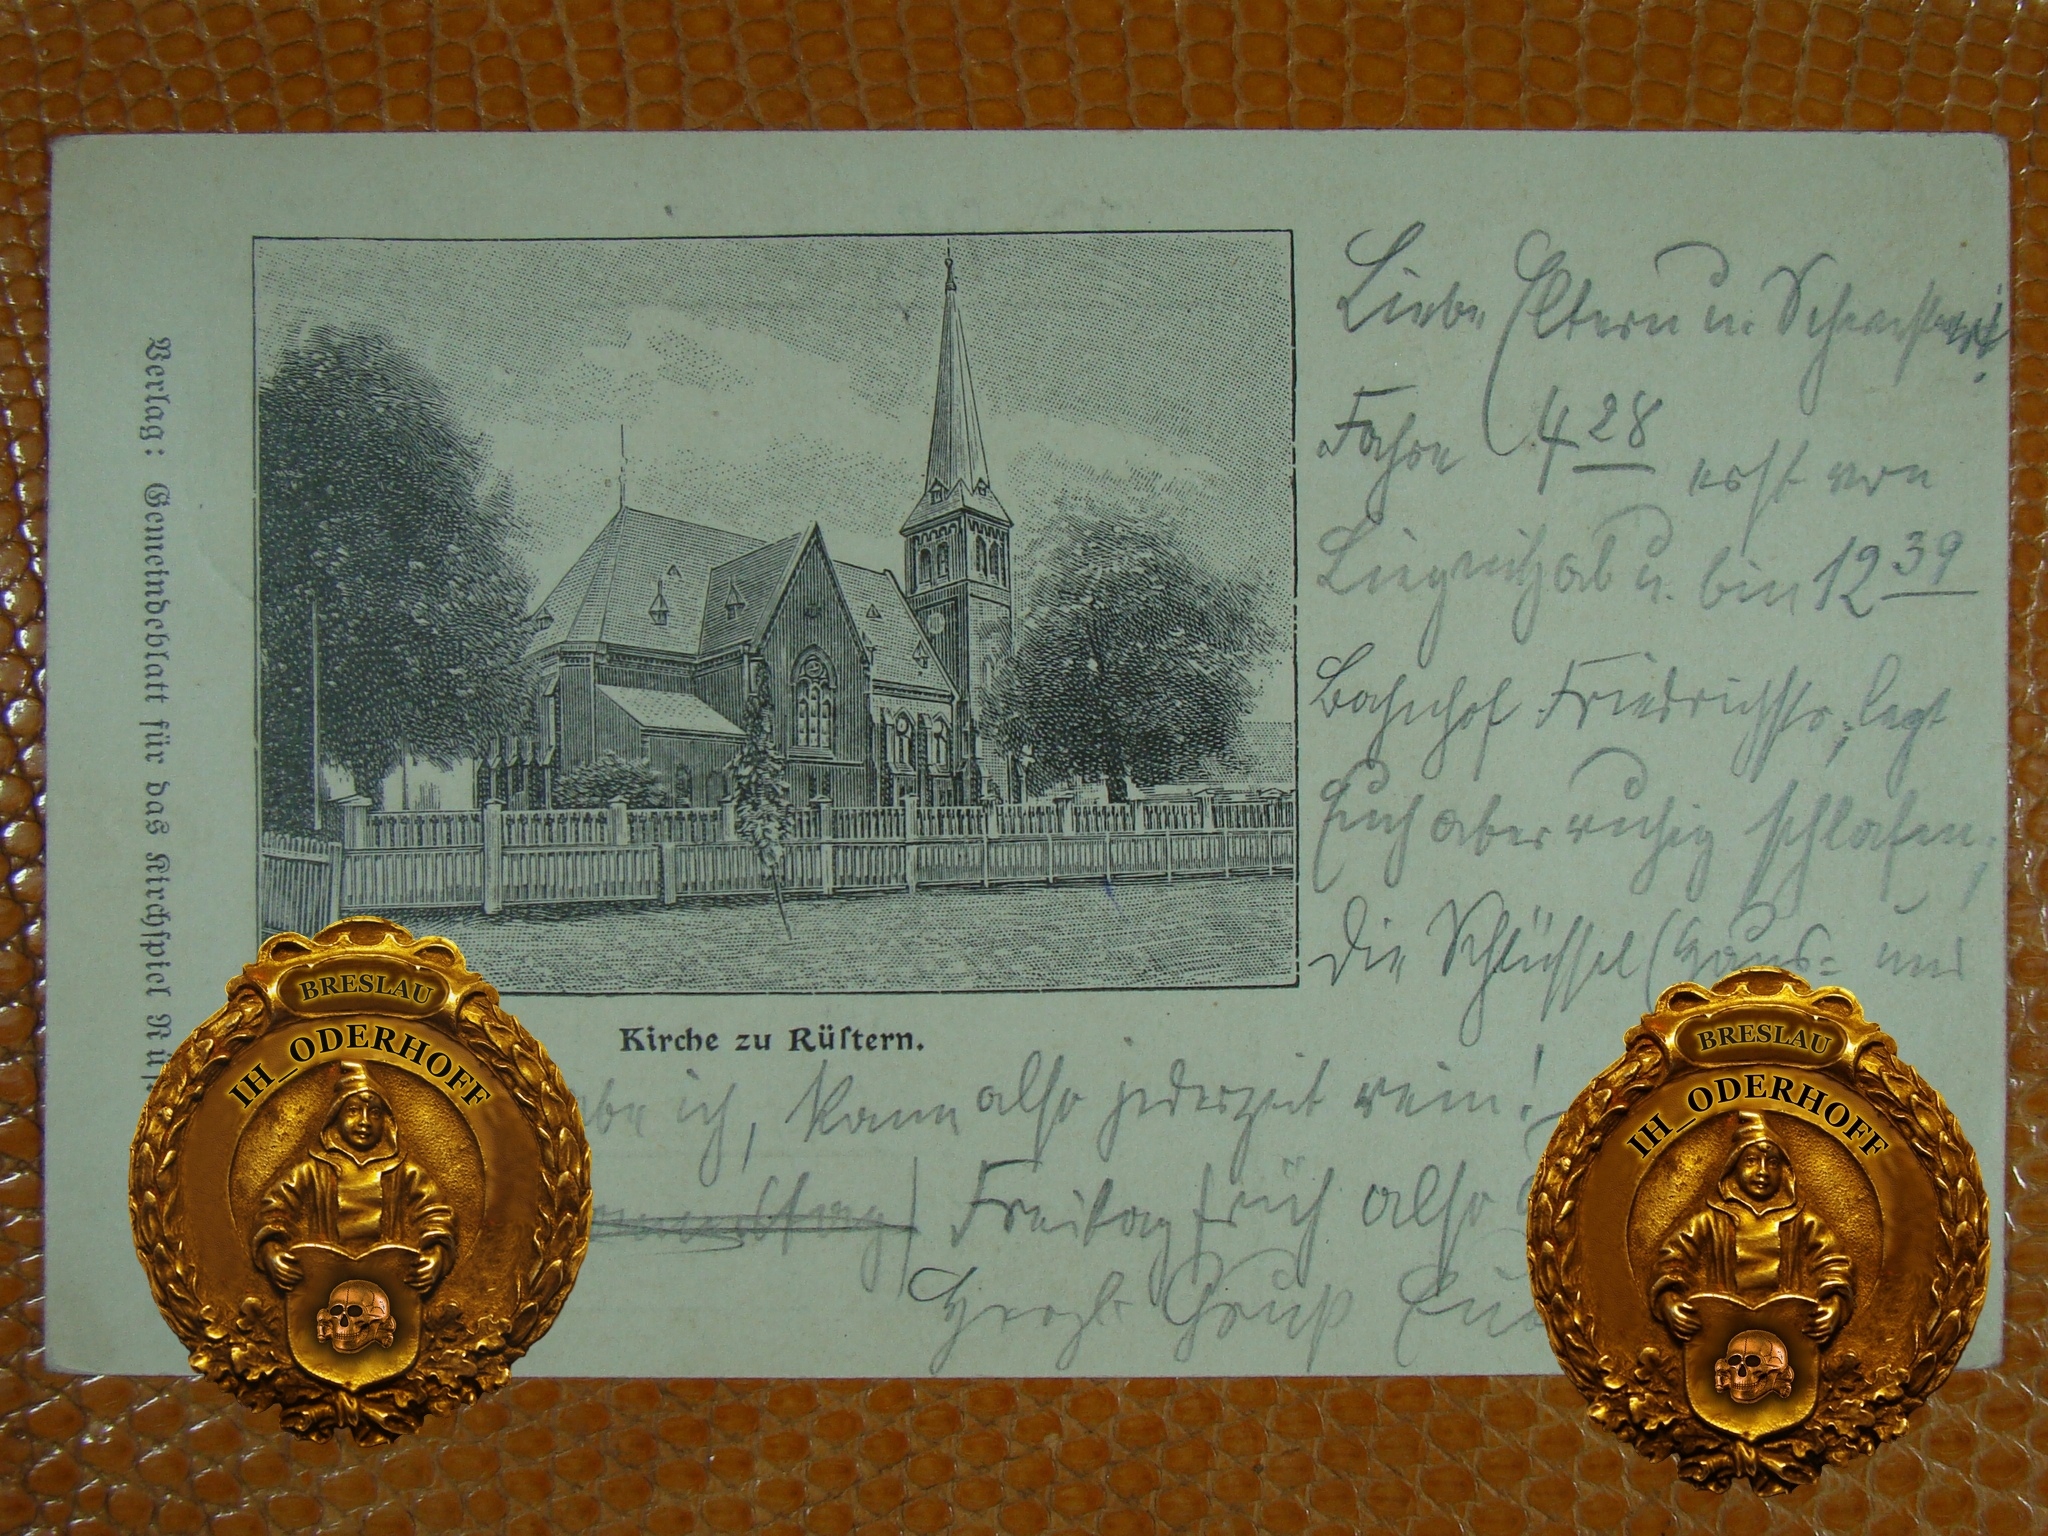 Liebe Eltern u. Schwester!
Fahre 4 28 erst von
Liegnitz ab u. bin 12 39
Bahnhof Friedrichstr., legt
Euch aber ruhig schlafen,
die Schlüssel (Haus= und
Kirche zu Rüſtern.
ich, kann also jederzeit rein!
Freitag früh also
Herzl. Gruß
Verlag: Gemeindeblatt für das Kirchſpiel
BRESLAU
IH_ODERHOFF
BRESLAU
IH_ODERHOFF